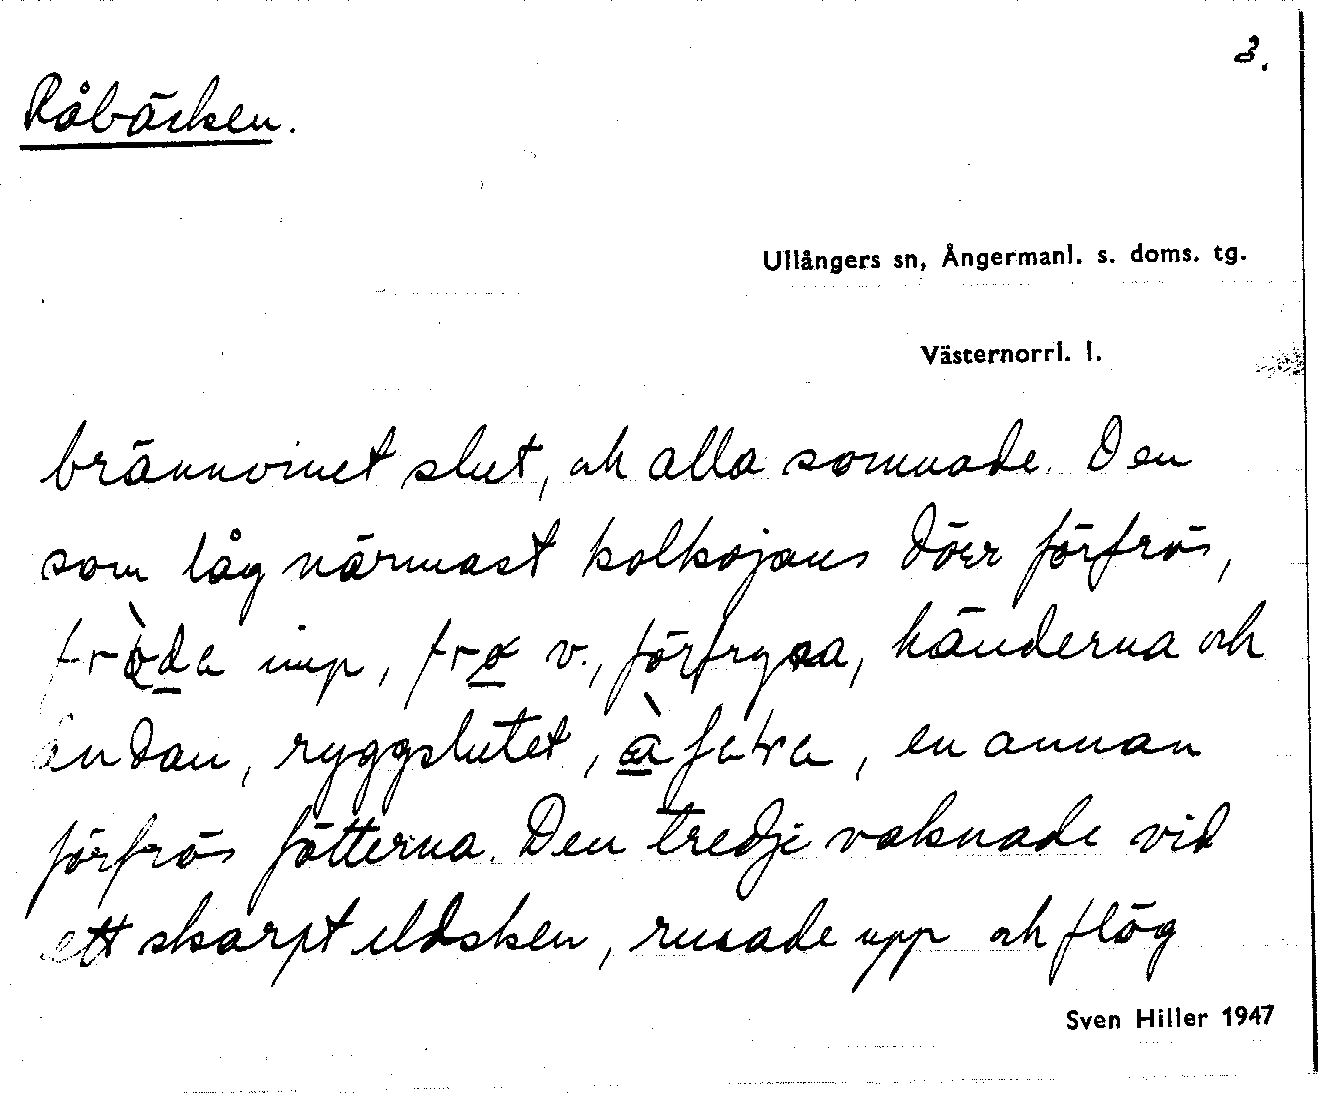 3.
Råbäcken.
Ullångers sn, Ångermanl. s. doms. tg.
Västernorrl. l.
brännvinet slut, och alla somnade. Den
som låg närmast kolkojans dörr förfrös,
imp, v., förfrysa, händerna och
ändan, ryggslutet, en annan
förfrös fötterna. Den tredje vaknade vid
ett skarpt eldsken, rusade upp och flög
Sven Hiller 1947